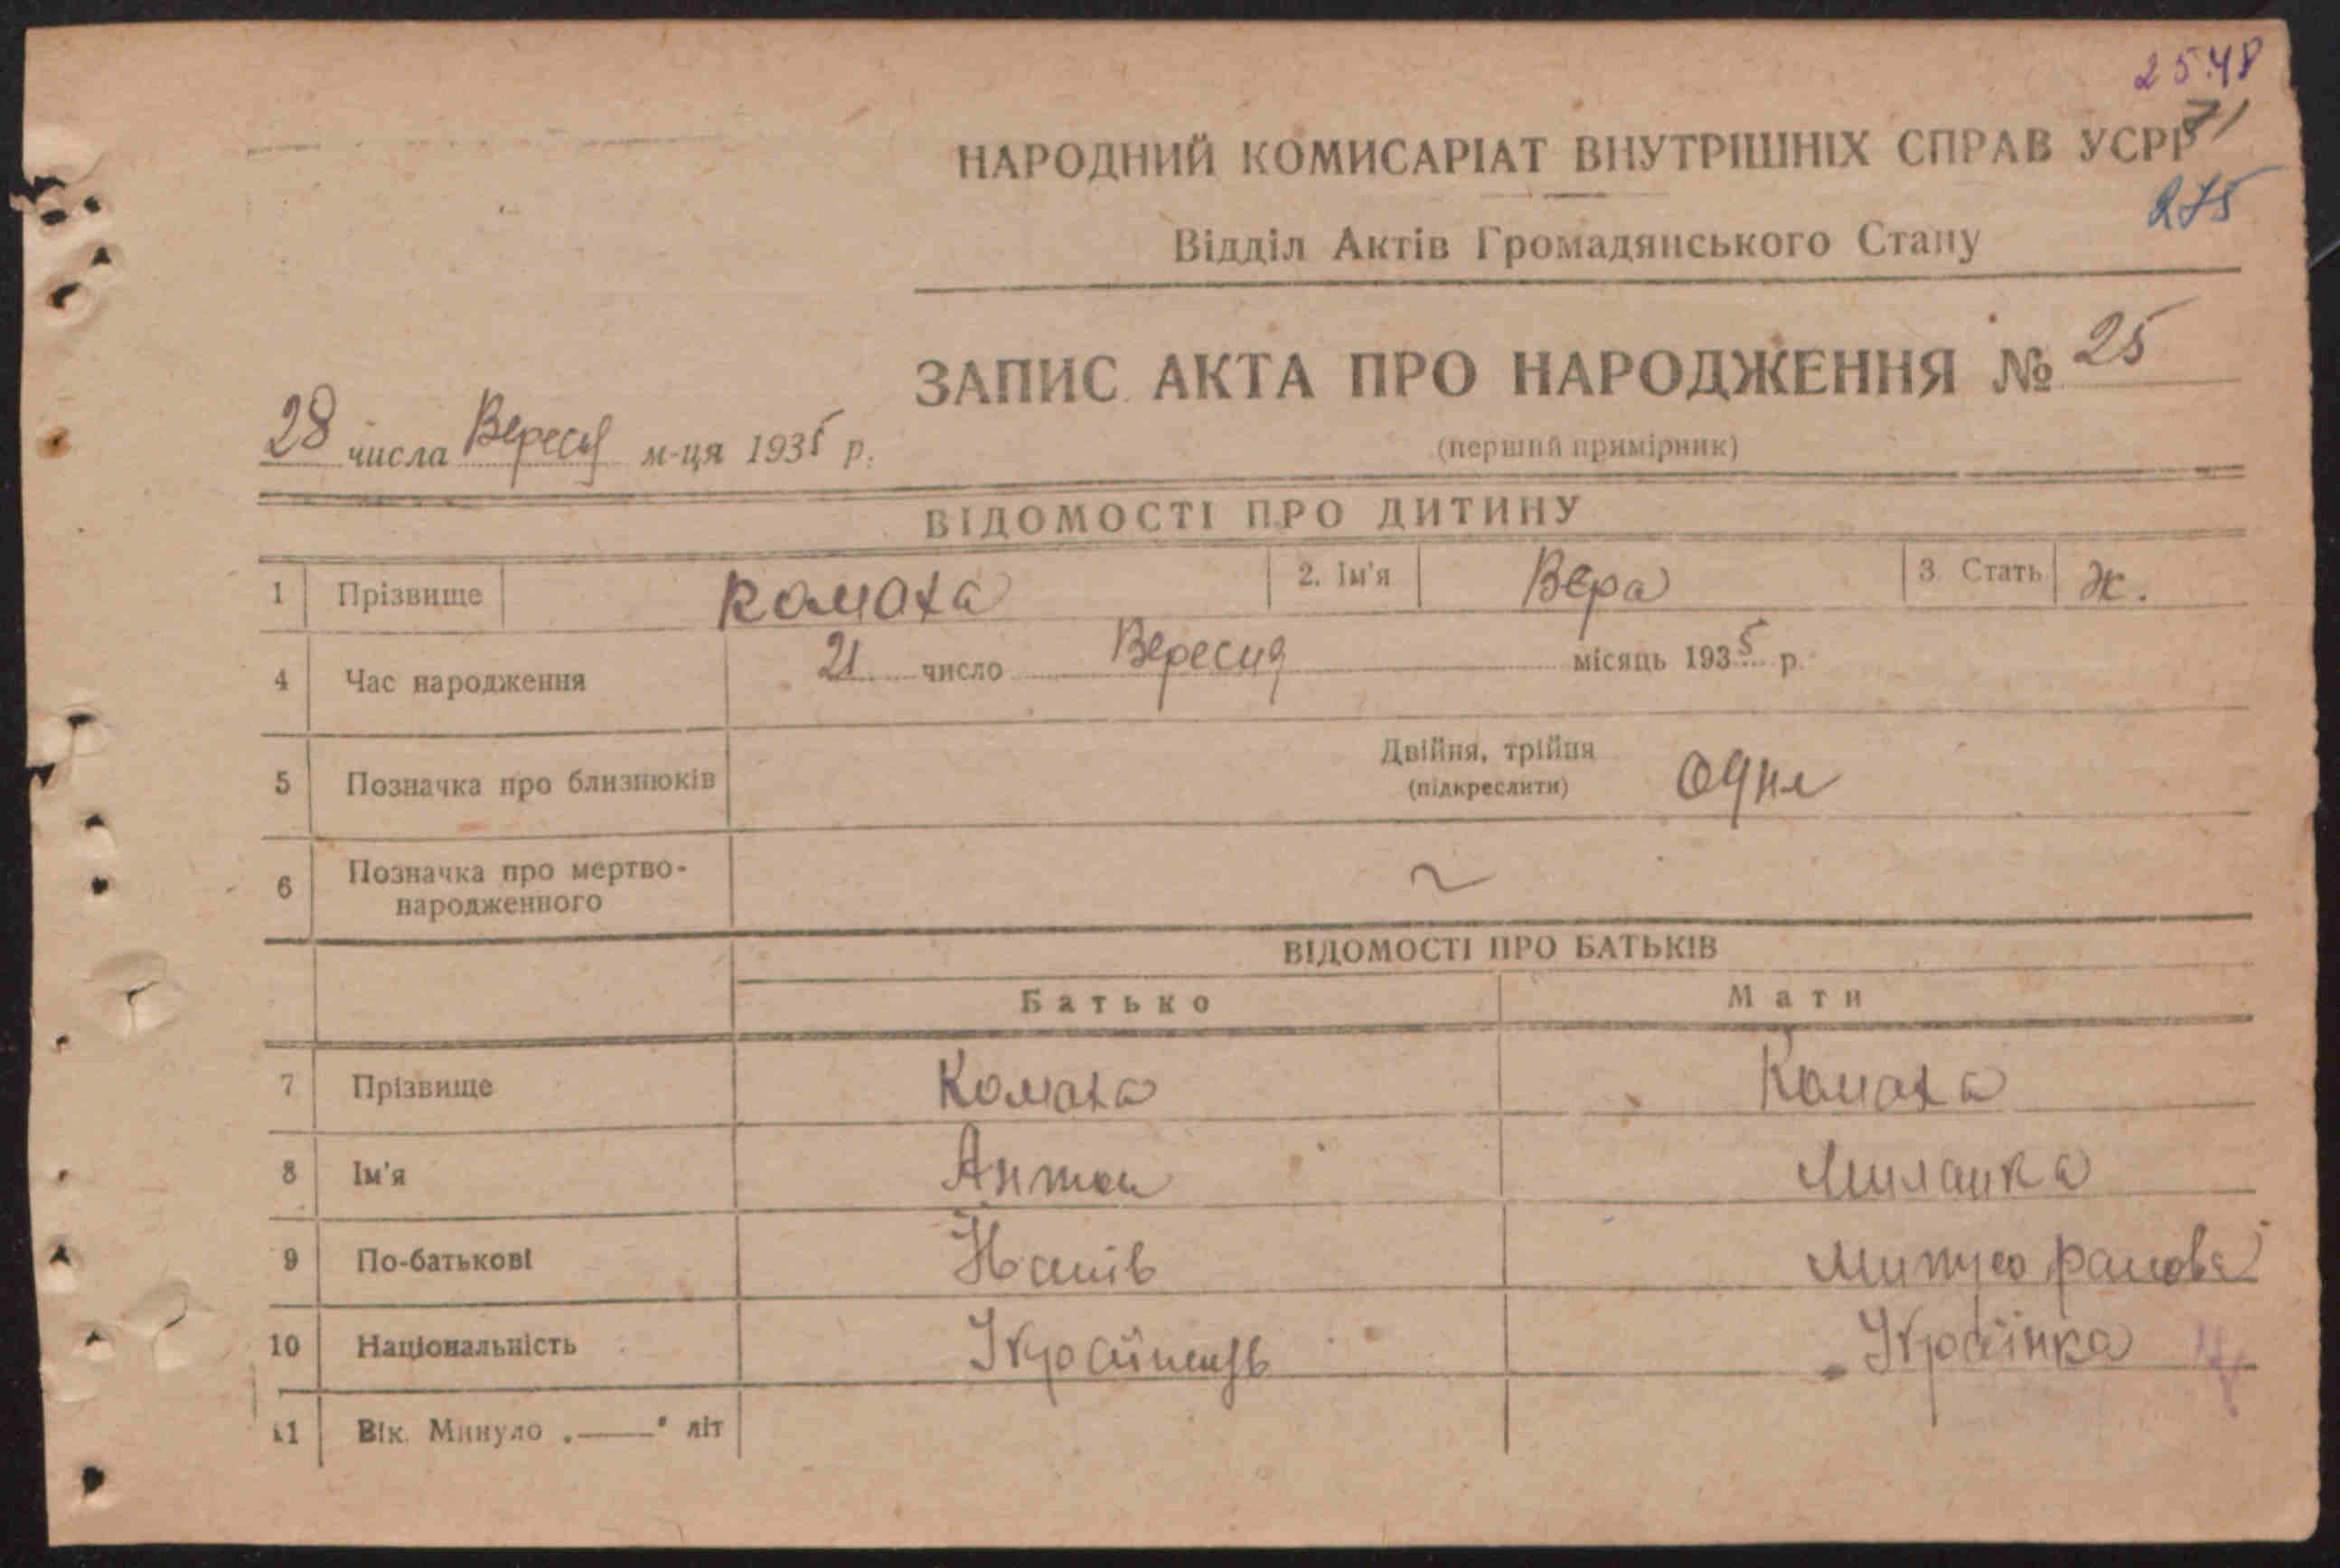 25.48
71
НАРОДНИЙ КОМИСАРІАТ ВНУТРІШНІХ СПРАВ УСРР
275
Відділ Актів Громадянського Стану
ЗАПИС АКТА ПРО НАРОДЖЕННЯ № 25
28 числа Вересня м-ця 1935 р.
(перший примірник)
ВІДОМОСТІ ПРО ДИТИНУ
1 Прізвище Комаха 2. Ім'я Вера 3. Стать ж.
4 Час народження 21 число Вересня місяць 1935 р.
5 Позначка про близнюків Двійня, трійня
(підкреслити) одня
6 Позначка про мертво-
народженного
ВІДОМОСТІ ПРО БАТЬКІВ
Батько Мати
7 Прізвище Комаха Комаха
8 Ім'я Антон Миланка
9 По-батькові
10 Національність Українець Українка
11 Вік. Минуло „——“ літ